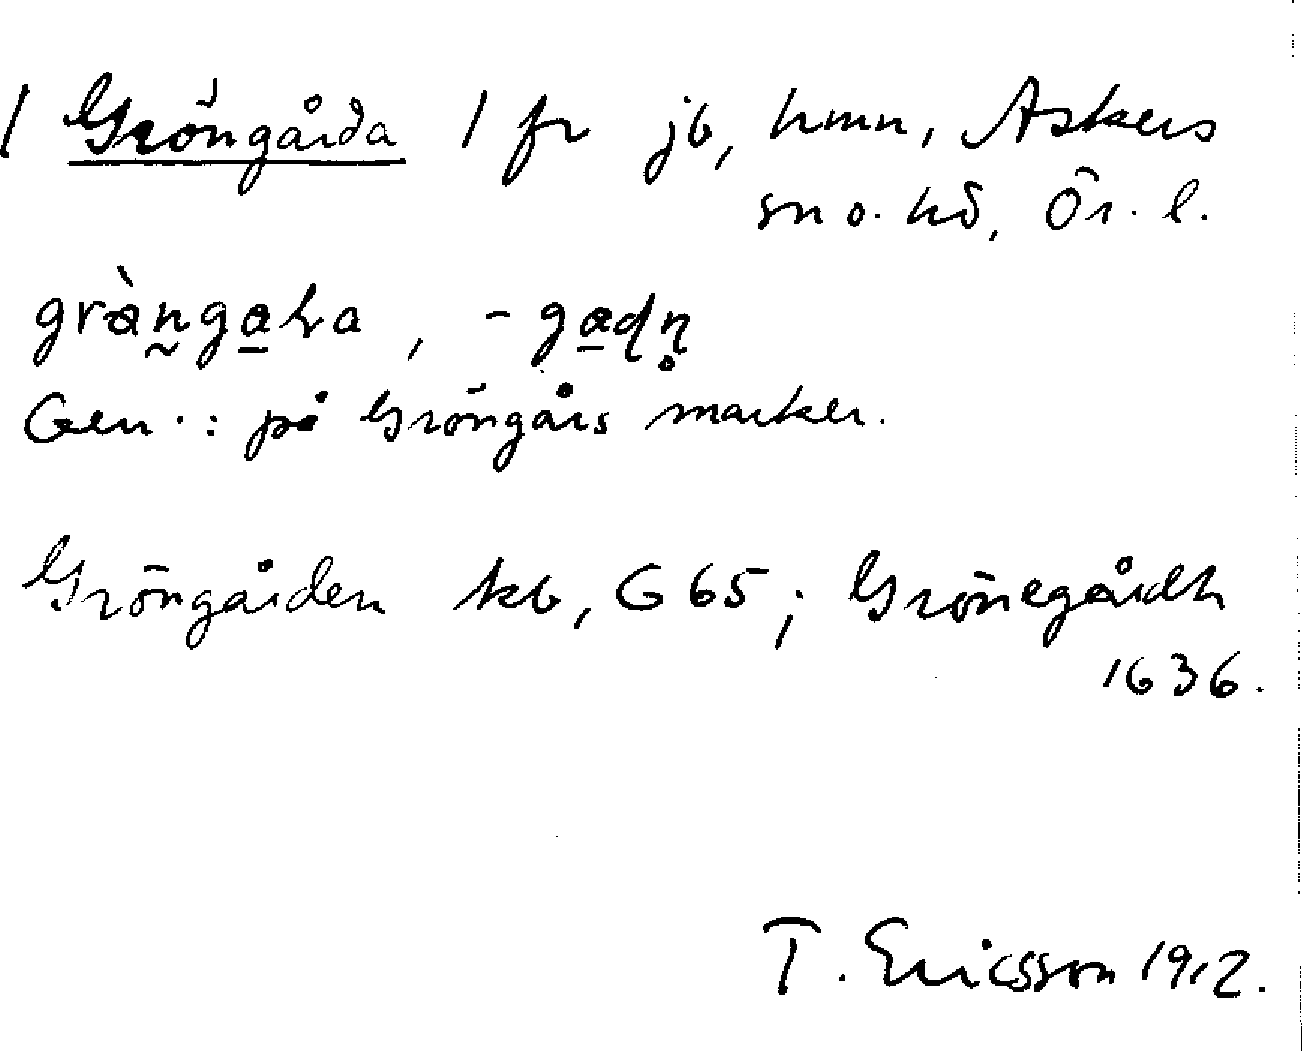 / Gröngårda / fr jb, hmn, Askers
sn o. hd, Ör. l.
Gen.: på Gröngårs marker.
Gröngården kb, G 65; Grönegårdh
1636.
T. Ericsson 1912.